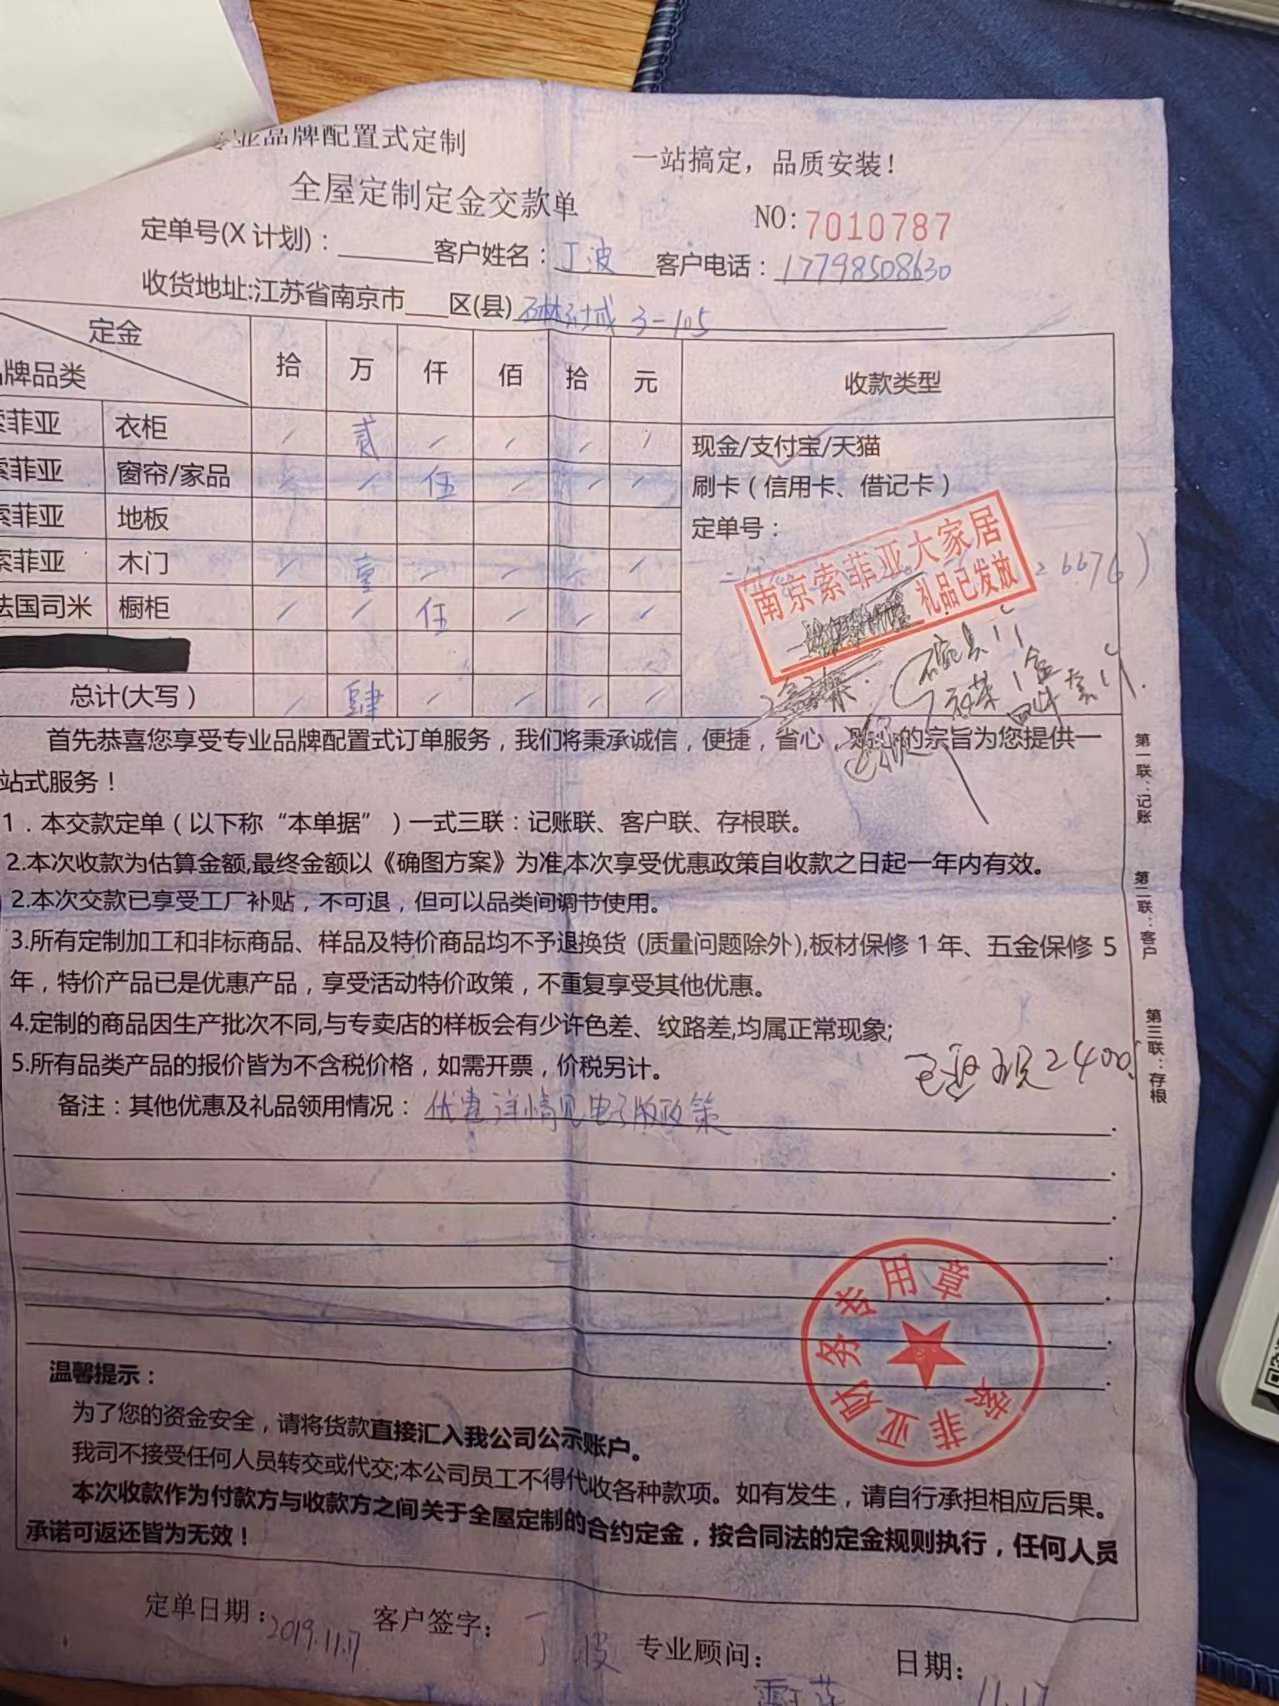 业品牌配置式定制
一站搞定，品质安装！
全屋定制定金交款单
NO:7010787
定单号(X计划)：
客户姓名：丁波
客户电话：17798508630
收货地址:江苏省南京市 区(县) 3-105
定金
牌品类
拾 万 仟 佰 拾 元 收款类型
索菲亚 衣柜 / 贰 / / / /
索菲亚 窗帘/家品 / / 伍 / / /
索菲亚 地板
索菲亚 木门 / 壹 / / / /
法国司米 橱柜 / / 伍 / / /
总计(大写) / 肆 / / / /
现金/支付宝/天猫
刷卡（信用卡、借记卡）
定单号：
26676)
南京索菲亚大家居
礼品已发放
首先恭喜您享受专业品牌配置式订单服务，我们将秉承诚信，便捷，省心，的宗旨为您提供一
站式服务！
1．本交款定单（以下称“本单据”）一式三联：记账联、客户联、存根联。
2.本次收款为估算金额,最终金额以《确图方案》为准,本次享受优惠政策自收款之日起一年内有效。
2.本次交款已享受工厂补贴，不可退，但可以品类间调节使用。
3.所有定制加工和非标商品、样品及特价商品均不予退换货 (质量问题除外),板材保修 1 年、五金保修 5
年，特价产品已是优惠产品，享受活动特价政策，不重复享受其他优惠。
4.定制的商品因生产批次不同,与专卖店的样板会有少许色差、纹路差,均属正常现象;
5.所有品类产品的报价皆为不含税价格，如需开票，价税另计。
2400
备注：其他优惠及礼品领用情况：优惠详情见电子版政策
第一联：记账
第二联：客户
第三联：存根
索菲亚财务专用章
温馨提示：
为了您的资金安全，请将货款直接汇入我公司公示账户。
我司不接受任何人员转交或代交;本公司员工不得代收各种款项。如有发生，请自行承担相应后果。
本次收款作为付款方与收款方之间关于全屋定制的合约定金，按合同法的定金规则执行，任何人员
承诺可返还皆为无效！
定单日期：2019.11.17
客户签字：丁波
专业顾问：
日期：11.17